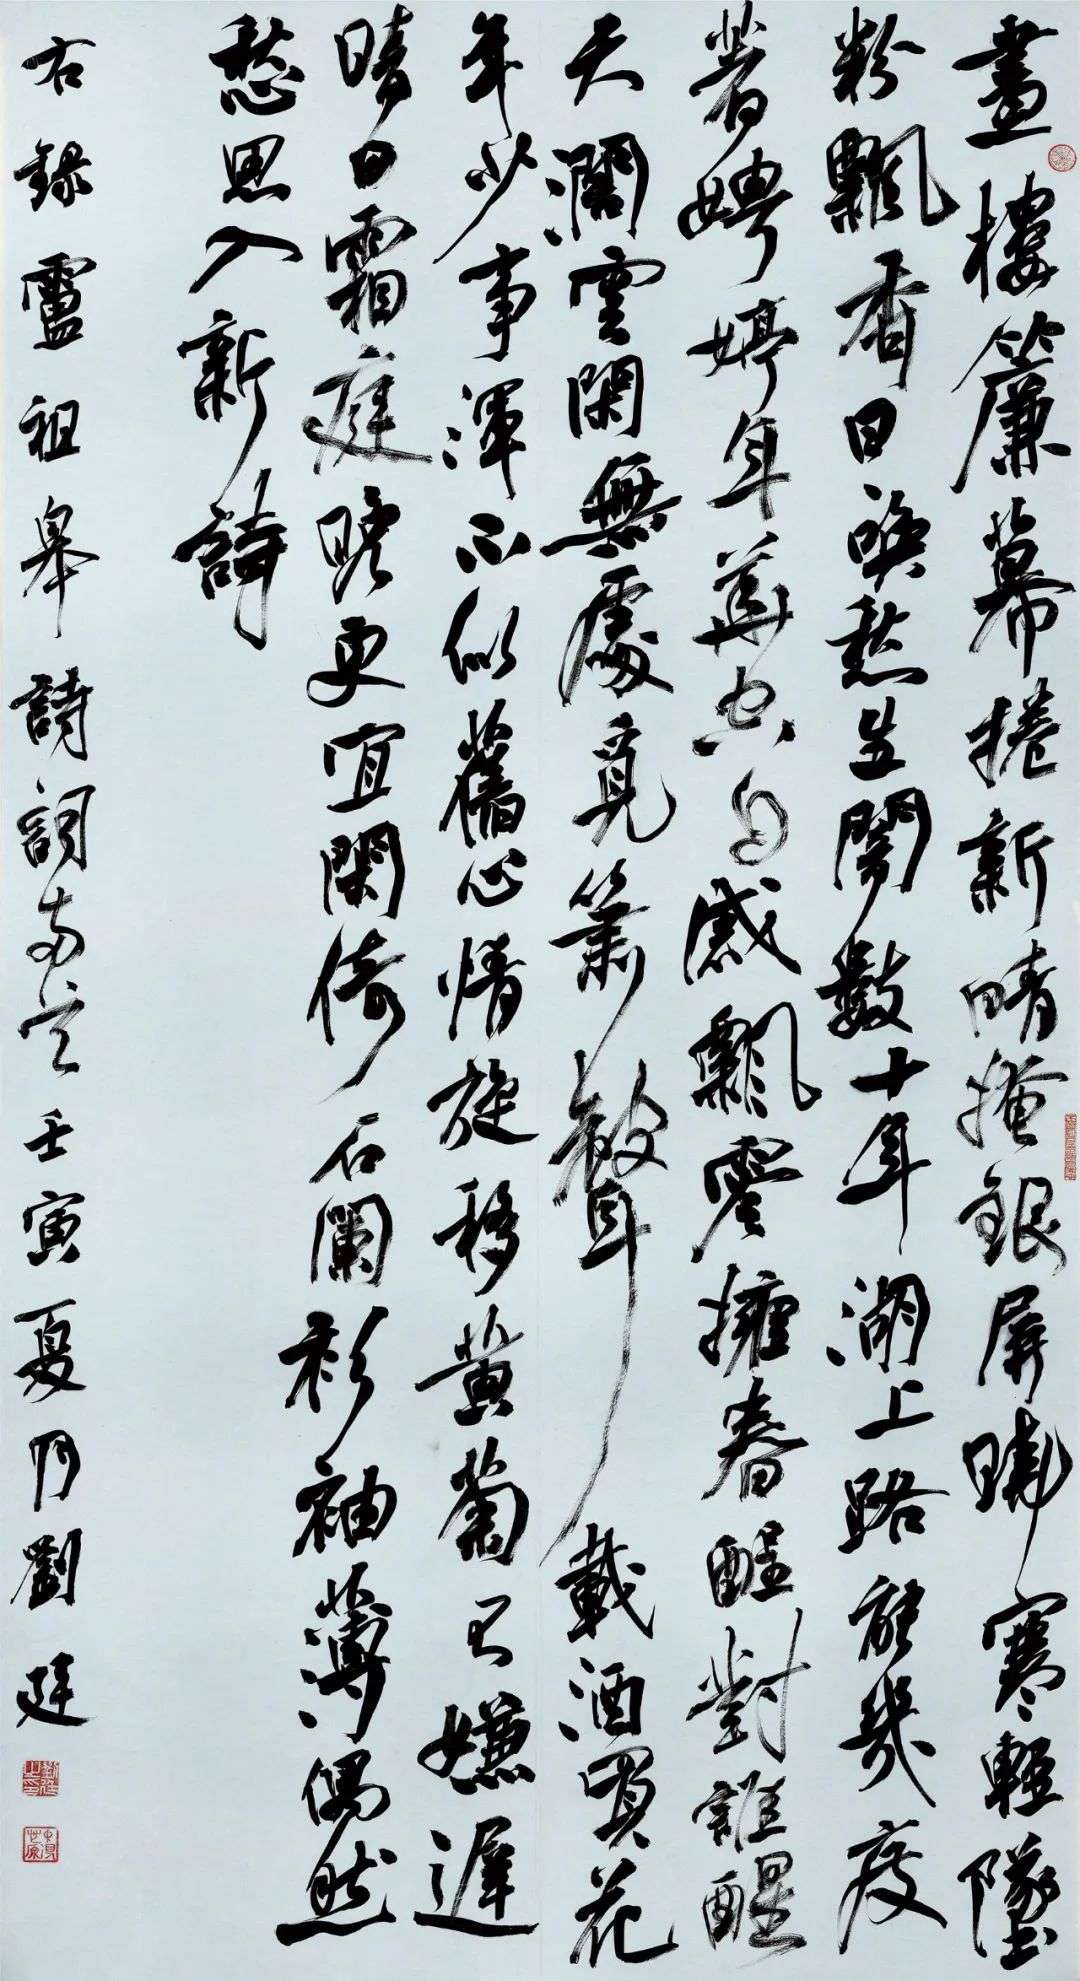 畫樓簾幕捲新晴掩銀屏曉寒輕墜
粉飄香日喚愁生闇數十年湖上路能幾度
著娉婷年華空自感飄零擁春酲對誰醒
天濶雲閑無處覓簫聲載酒買花
年少事渾不似舊心情旋移黃菊已嫌遲
晴日霜庭曉更宜閑倚石闌衫袖薄偶然
愁思入新詩
右錄盧祖皋詩詞兩首壬寅夏月劉廷